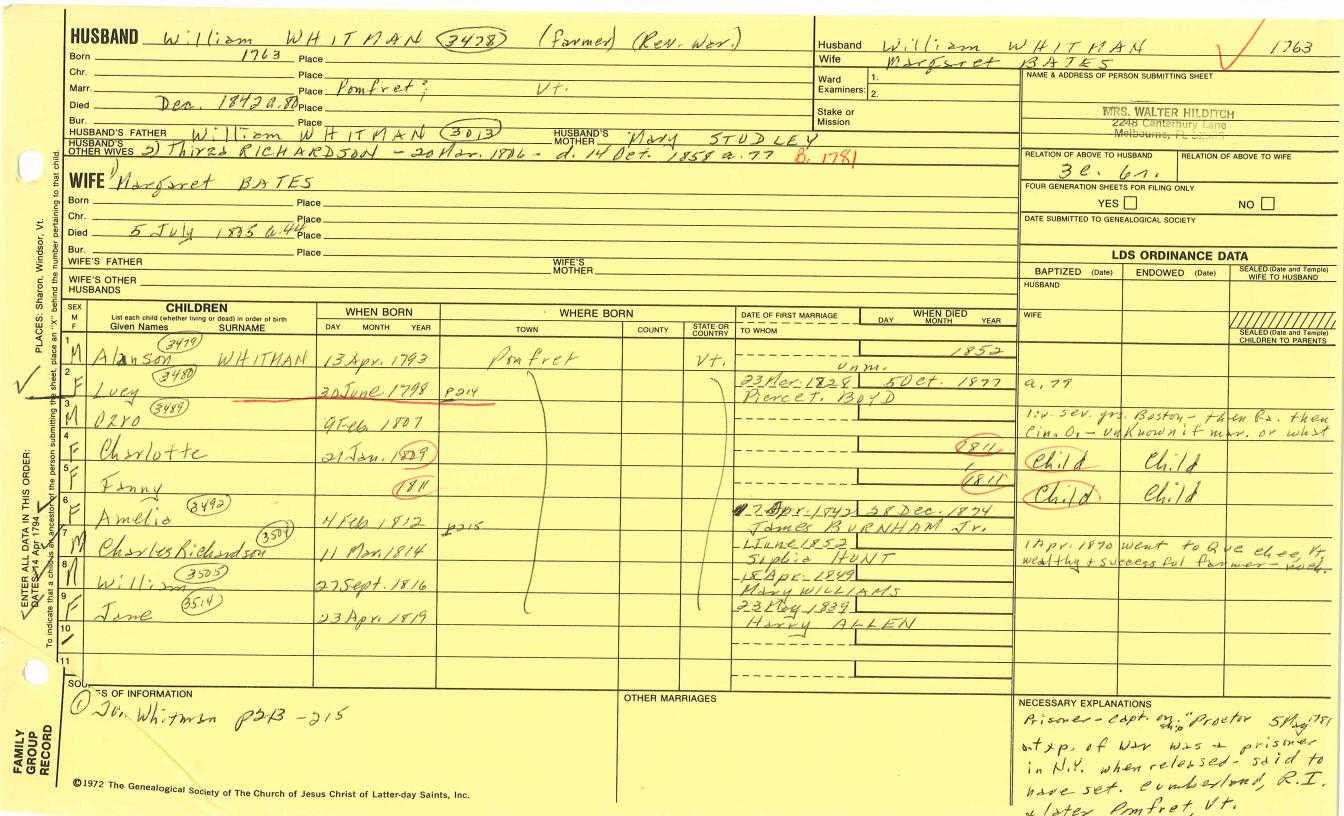 HUSBAND William WHITMAN (3478) (farmer) (Rev. War.)
Born 1763 Place
Chr. Place
Marr. Place Pomfret; Vt.
Died Dec. 1842 a. 80 Place
Bur. Place
HUSBAND'S FATHER William WHITMAN (3013) HUSBAND'S MOTHER Mary STUDLEY
HUSBAND'S OTHER WIVES 2) Thirza RICHARDSON - 20 Mar. 1806 - d. 14 Oct. 1858 a. 77 B. 1781
Husband William WHITMAN 1763
Wife Margaret BATES
Ward Examiners: 1.
2.
Stake or Mission
NAME & ADDRESS OF PERSON SUBMITTING SHEET
MRS. WALTER HILDITCH
2248 Canterbury Lane
Melbourne, FL
RELATION OF ABOVE TO HUSBAND RELATION OF ABOVE TO WIFE
3c. 6r.
FOUR GENERATION SHEETS FOR FILING ONLY
YES NO
DATE SUBMITTED TO GENEALOGICAL SOCIETY
WIFE 1) Margaret BATES
Born Place
Chr. Place
Died 5 July 1805 a. 44 Place
Bur. Place
WIFE'S FATHER WIFE'S MOTHER
WIFE'S OTHER HUSBANDS
LDS ORDINANCE DATA
BAPTIZED (Date) ENDOWED (Date) SEALED (Date and Temple) WIFE TO HUSBAND
HUSBAND
WIFE
SEALED (Date and Temple) CHILDREN TO PARENTS
SEX M F CHILDREN WHEN BORN WHERE BORN DATE OF FIRST MARRIAGE WHEN DIED
List each child (whether living or dead) in order of birth
Given Names SURNAME DAY MONTH YEAR TOWN COUNTY STATE OR COUNTRY TO WHOM DAY MONTH YEAR
1 M Alanson (3479) WHITMAN 13 Apr. 1793 Pomfret Vt. 1852
unm.
2 F Lucy (3480) 30 June 1798 P214 23 Mar. 1828 5 Oct. 1877 a. 79
Pierce T. BOYD
3 M Ozro (3489) 9 Feb. 1807 liv. sev. yrs. Boston - then Pa. then
Cin. O. - unknown if mar. or what
4 F Charlotte 21 Jan. 1809 1811 Child Child
5 F Fanny 1811 1811 Child Child
6 F Amelia (3492) 4 Feb. 1812 P215 Apr. 1842 28 Dec. 1874
James BURNHAM Jr.
7 M Charles Richardson (3504) 11 Mar. 1814 1 June 1852 1 Apr. 1870 went to Quechee, Vt.
Sophia HUNT wealthy & successful farmer -
8 M William (3505) 27 Sept. 1816 18 Apr. 1849
Mary WILLIAMS
9 F Jane (3514) 23 Apr. 1819 23 May 1839
Harry ALLEN
10
11
SOURCES OF INFORMATION
① Whitman p213 - 215
OTHER MARRIAGES
NECESSARY EXPLANATIONS
Prisoner - capt. on ship "Proctor 5 May 1781
at exp. of War was a prisoner
in N.Y. when released - said to
have set. Cumberland, R.I.
& later Pomfret, Vt.
©1972 The Genealogical Society of The Church of Jesus Christ of Latter-day Saints, Inc.
FAMILY GROUP RECORD
ENTER ALL DATA IN THIS ORDER:
DATES: 14 Apr 1794
PLACES: Sharon, Windsor, Vt.
To indicate that a child is an ancestor of the person submitting the sheet, place an "X" behind the number pertaining to that child.